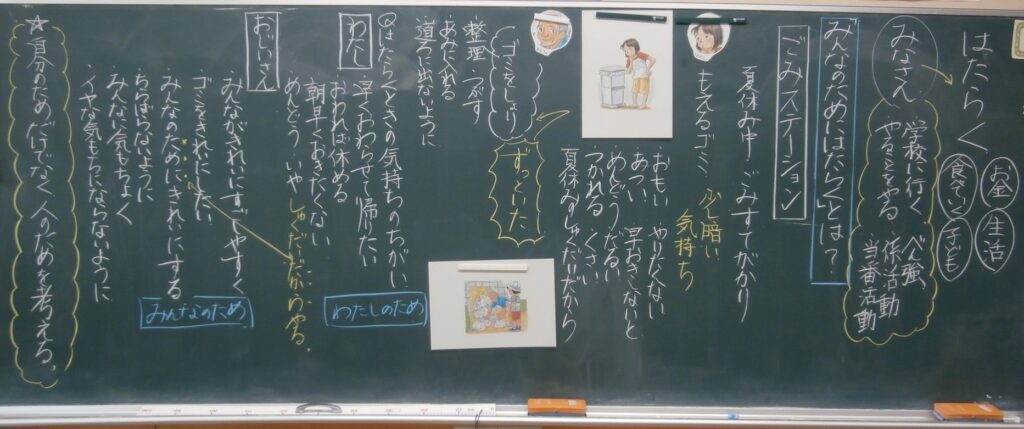 はたらく
お金
生活
食べていく
子ども
みなさん
学校に行く べん強
やることをやる 係活動
当番活動
「みんなのためにはたらく」とは？
ごみステーション
夏休み中 ごみすてがかり
もえるゴミ 少し暗い
気持ち
おもい やりたくない
あつい 早おきしないと
めんどうだなぁ
つかれる くさい
夏休みのしゅくだいだから
ずっといた
ゴミをしっかり
整理 つぶす
あみに入れる
道ろに出ないように
◎はたらくときの気持ちのちがい
わたし
早くおわらせて帰りたい
おわれば休める
朝早くおきたくない
めんどう いや しゅくだいだからやる。
わたしのため
おじいさん
みんながきれいにすごしやすく
ゴミをきれいにしたい
みんなのためにきれいにする
ちらばらないように
みんな気もちよく
イヤな気もちにならないように
みんなのため
☆自分のためだけでなく人のためを考える。